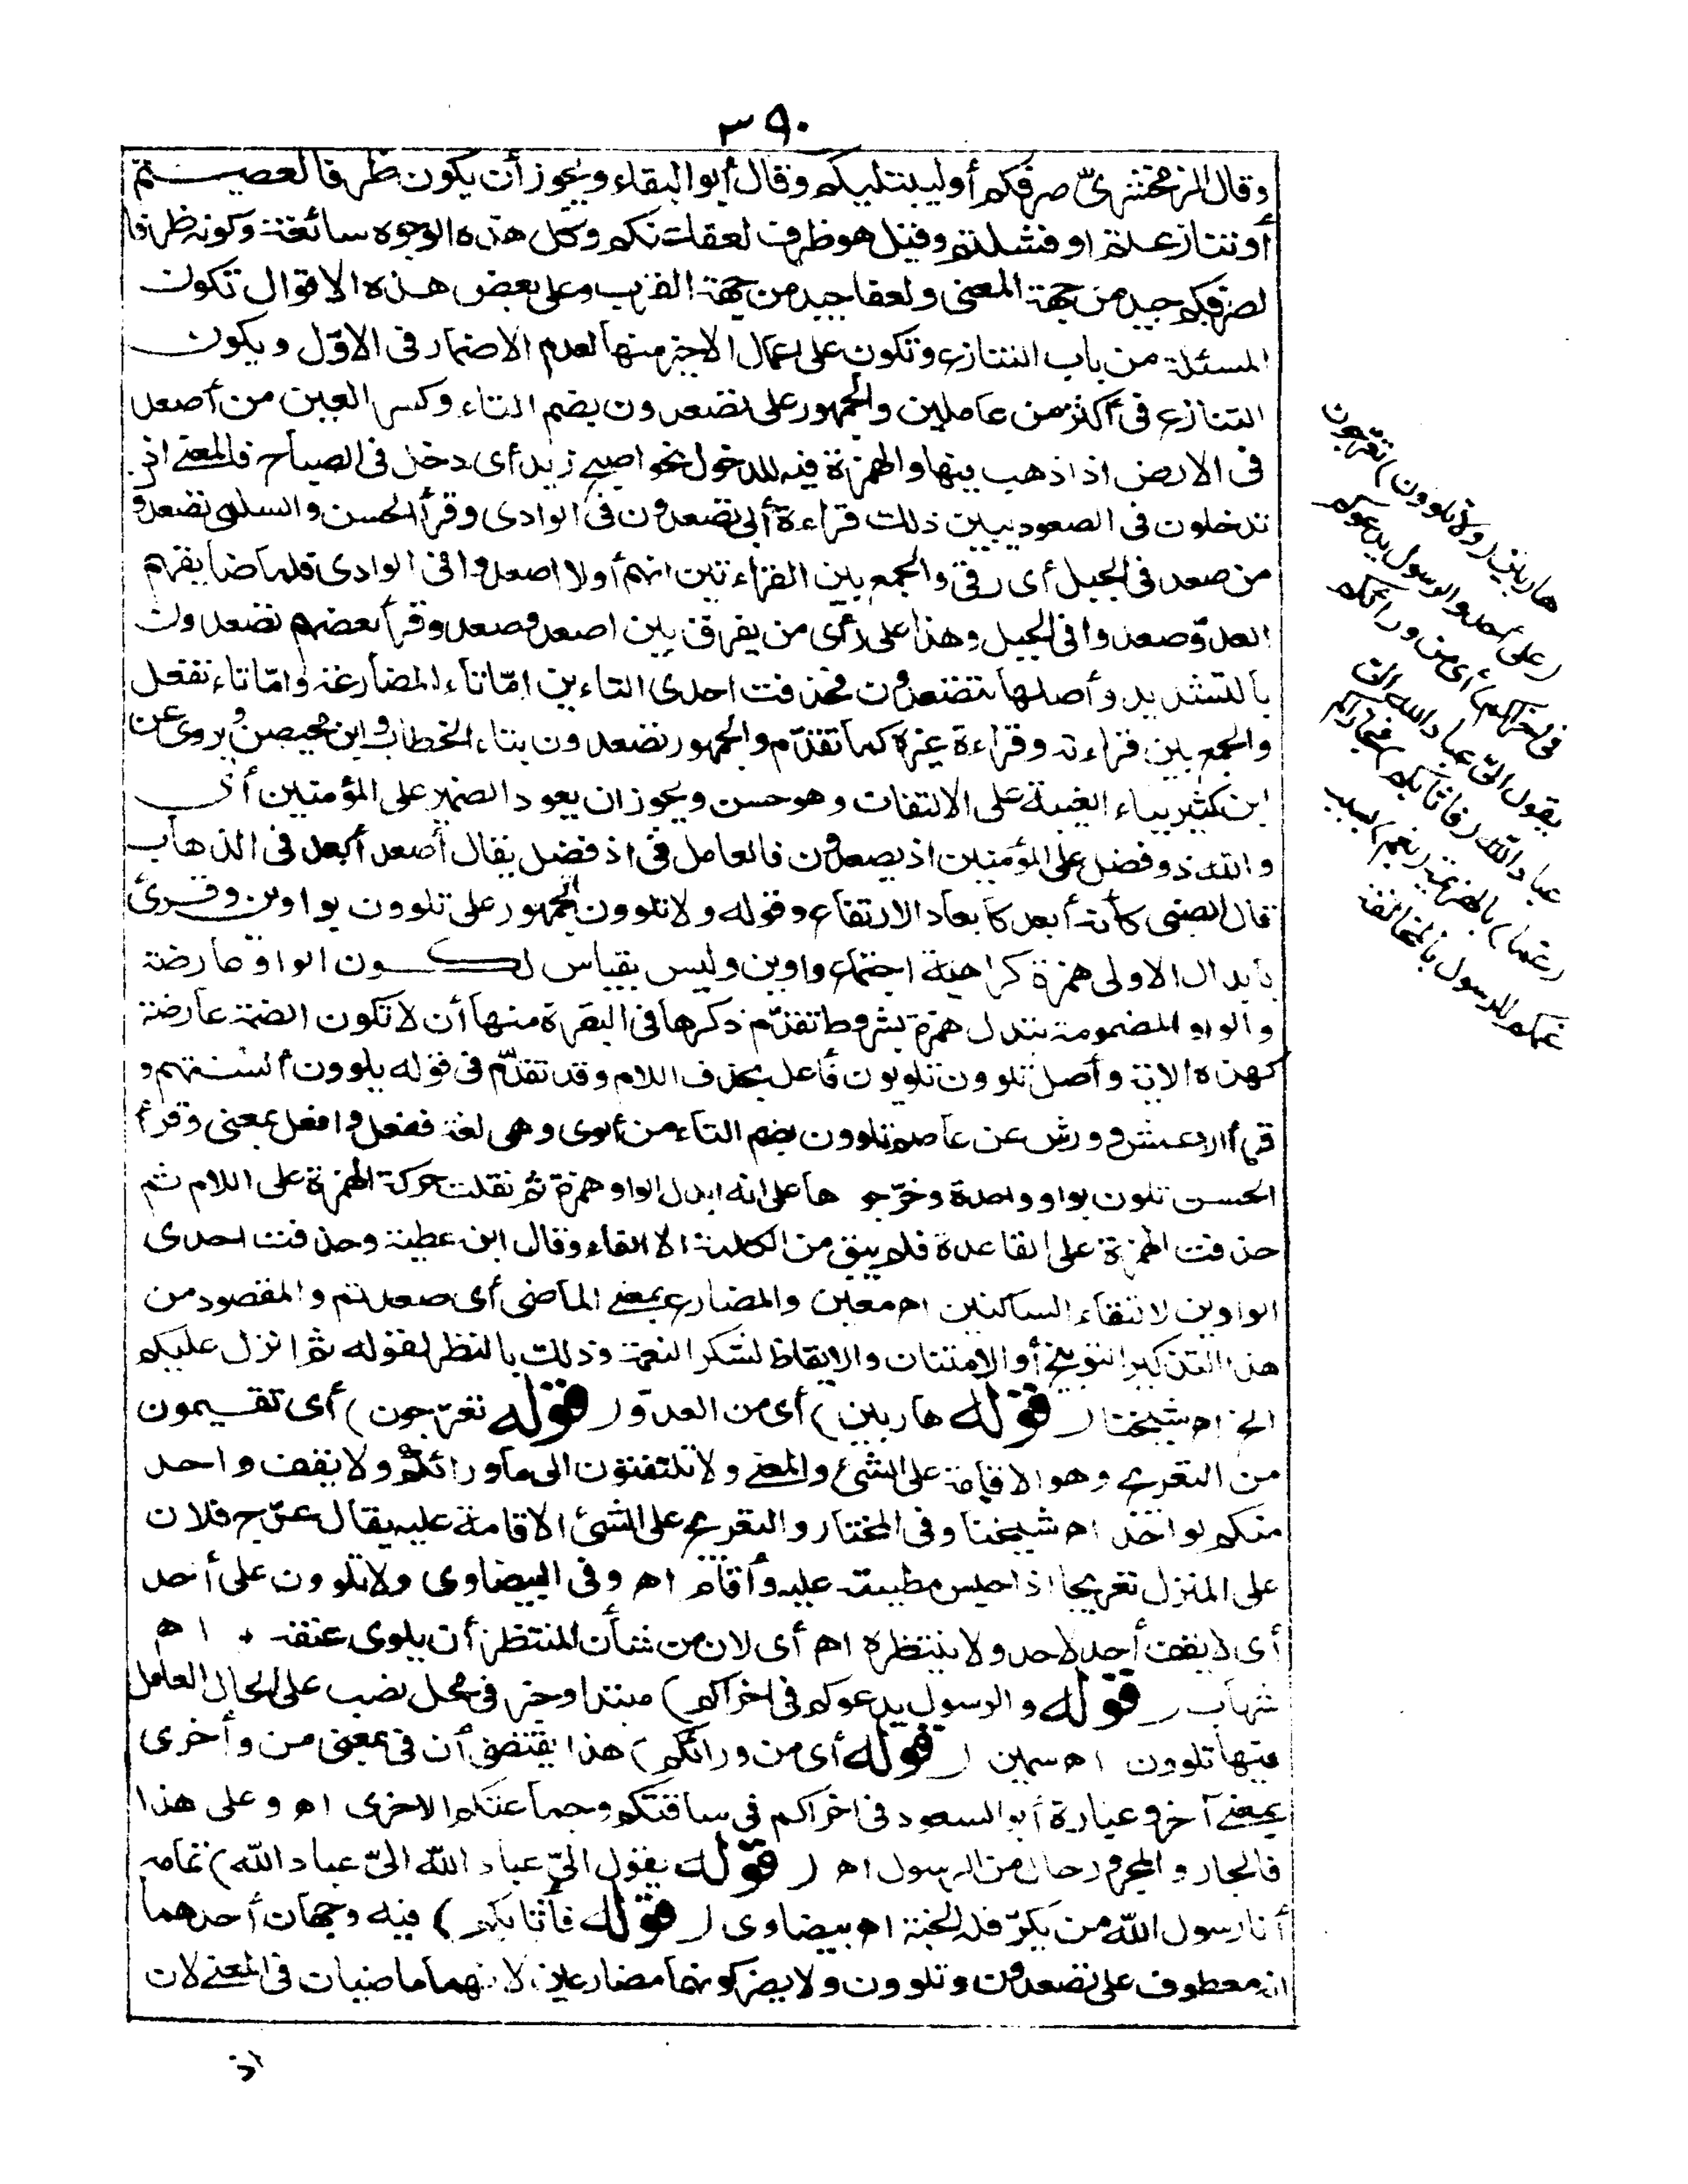 ٣٩٠
وقال الزمخشرىّ صرفكم أوليبتليكم وقال أبوالبقاء ويجوز أن يكون ظرفا لعصيتم
أوتنازعتم او فشلتم وقيل هوظرف لعفا عنكم وكل هذه الوجوه سائغة وكونه ظرفا
لصرفكم جيد من جهة المعنى ولعفا جيد من جهة القرب وعلى بعض هذه الاقوال تكون
المسئلة من باب التنازع وتكون على اعمال الاخير منها لعدم الاضمار فى الاوّل ويكون
التنازع فى أكثر من عاملين والجمهور على تصعدون بضم التاء وكسر العين من أصعد
فى الارض اذا ذهب فيها والهمزة فيه للدخول نحو اصبح زيد أى دخل فى الصباح فالمعنى اذ
تدخلون فى الصعود يبين ذلك قراءة أبى تصعدون فى الوادى وقرأ الحسن والسلمى تصعدو
من صعد فى الجبل أى رقى والجمع بين القراءتين انهم أولا اصعدوا فى الوادى فلما ضايقهم
العدوّ صعدوا فى الجبل وهذا على رأى من يفرق بين اصعد وصعد وقرأ بعضهم تصعدون
بالتشديد وأصلها تتصعدون فحذفت احدى التاءين امّا تاء المضارعة وامّا تاء تفعل
والجمع بين قراءته وقراءة غيره كما تقدّم والجمهور تصعدون بتاء الخطاب وابن محيصن ويروى عن
ابن كثير بياء الغيبة على الالتفات وهو حسن ويجوز ان يعود الضمير على المؤمنين أى
والله ذو فضل على المؤمنين اذ يصعدون فالعامل فى اذ فضل يقال أصعد أبعد فى الذهاب
قال القتبى كأنه أبعد كابعاد الارتفاع وقوله ولاتلوون الجمهور على تلوون بواوين وقرئ
بابدال الاولى همزة كراهية اجتماع واوين وليس بقياس لكون الواو عارضة
والواو المضمومة تبدل همزة بشروط تقدّم ذكرها فى البقرة منها أن لاتكون الضمة عارضة
كهذه الاية وأصل تلوون تلويون فأعل بحذف اللام وقد تقدّم فى قوله يلوون ألسنتهم و
قرأ الاعمش وورش عن عاصم تلوون بضم التاء من ألوى وهى لغة ففعل وافعل بمعنى وقرأ
الحسن تلون بواو واحدة وخرّجوها على انه ابدل الواو همزة ثم نقلت حركة الهمزة على اللام ثم
حذفت الهمزة على القاعدة فلم يبق من الكلمة الا الفاء وقال ابن عطية وحذفت احدى
الواوين لالتقاء الساكنين اه معين والمضارع بمعنى الماضى أى صعدتم والمقصود من
هذا التذكير التوبيخ أو الامتنان والايقاظ لشكر النعمة وذلك بالنظر لقوله ثم انزل عليكم
الخ اه شيخنا (قوله هاربين) أى من العدوّ (قوله تعرّجون) أى تقيمون
من التعريج وهو الاقامة على الشئ والمعنى ولاتلتفتون الى ما ورائكم ولايقف واحد
منكم لواحد اه شيخنا وفى المختار والتعريج على الشئ الاقامة عليه يقال عرّج فلان
على المنزل تعريجا اذا حبس مطيته عليه وأقام اه وفى البيضاوى ولاتلوون على أحد
أى لايقف أحد لاحد ولاينتظره اه أى لان من شأن المنتظر أن يلوى عنقه اه
شهاب (قوله والرسول يدعوكم فى اخراكم) مبتدا وخبر فى محل نصب على الحال العامل
فيها تلوون اه سمين (قوله أى من ورائكم) هذا يقتضى أن فى بمعنى من وأخرى
بمعنى آخر وعبارة أبوالسعود فى اخراكم فى ساقتكم وجماعتكم الاخرى اه وعلى هذا
فالجار والمجرور حال من الرسول اه (قوله يقول الىّ عباد الله الىّ عباد الله) تمامه
أنا رسول الله من يكرّ فله الجنة اه بيضاوى (قوله فأثابكم) فيه وجهان أحدهما
انه معطوف على تصعدون وتلوون ولايضر كونهما مضارعين لانهما ماضيان فى المعنى لان
اذ
هاربين (ولاتلوون) تعرّجون
(على أحد والرسول يدعوكم
فى اخراكم) أى من ورائكم
يقول الىّ عباد الله الىّ
عباد الله (فأثابكم) فجازاكم
(غما) بالهزيمة (بغم) بسبب
غمكم للرسول بالمخالفة